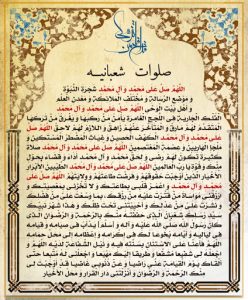 صلوات شعبانیه
اللهم صل علی محمد وآل محمد شجرة النبوة
و موضع الرسالة و مختلف الملائکة و معدن العلم
و أهل بیت الوحی اللهم صل علی محمد وآل محمد
الفلک الجاریة فی اللجج الغامرة یأمن من رکبها و یغرق من ترکها
المتقدم لهم مارق و المتأخر عنهم زاهق و اللازم لهم لاحق اللهم صل
علی محمد وآل محمد الکهف الحصین و غیاث المضطر المستکین و
ملجإ الهاربین و عصمة المعتصمین اللهم صل علی محمد وآل محمد صلاة
کثیرة تکون لهم رضی و لحق محمد وآل محمد أداء و قضاء بحول
منک و قوة یا رب العالمین اللهم صل علی محمد وآل محمد الطیبین
الأبرار الأخیار الذین أوجبت حقوقهم و فرضت طاعتهم و ولایتهم اللهم صل علی
محمد وآل محمد و اعمر قلبی بطاعتک و لا تخزنی بمعصیتک و
ارزقنی مواساة من قترت علیه من رزقک بما وسعت علی من فضلک
و نشرت علی من عدلک و أحییتنی تحت ظلک و هذا شهر نبیک
سید رسلک شعبان الذی حففته منک بالرحمة و الرضوان الذی
کان رسول الله صلی الله علیه و آله و سلم یدأب فی صیامه و قیامه
فی لیالیه و أیامه بخوعا لک فی إکرامه و إعظامه إلی محل حمامه
اللهم فأعنا علی الاستنان بسنته فیه و نیل الشفاعة لدیه اللهم و
اجعله لی شفیعا مشفعا و طریقا إلیک مهیعا و اجعلنی له متبعا حتی
ألقاک یوم القیامة عنی راضیا و عن ذنوبی غاضیا قد أوجبت لی
منک الرحمة و الرضوان و أنزلتنی دار القرار و محل الأخیار